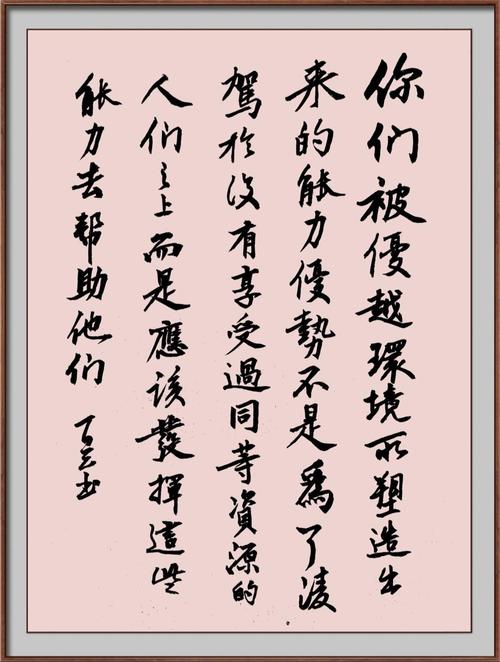 你们被優越環境所塑造出
来的能力優勢不是爲了淩
駕於没有享受過同等資源的
人们之上而是應该發揮這些
能力去帮助他们